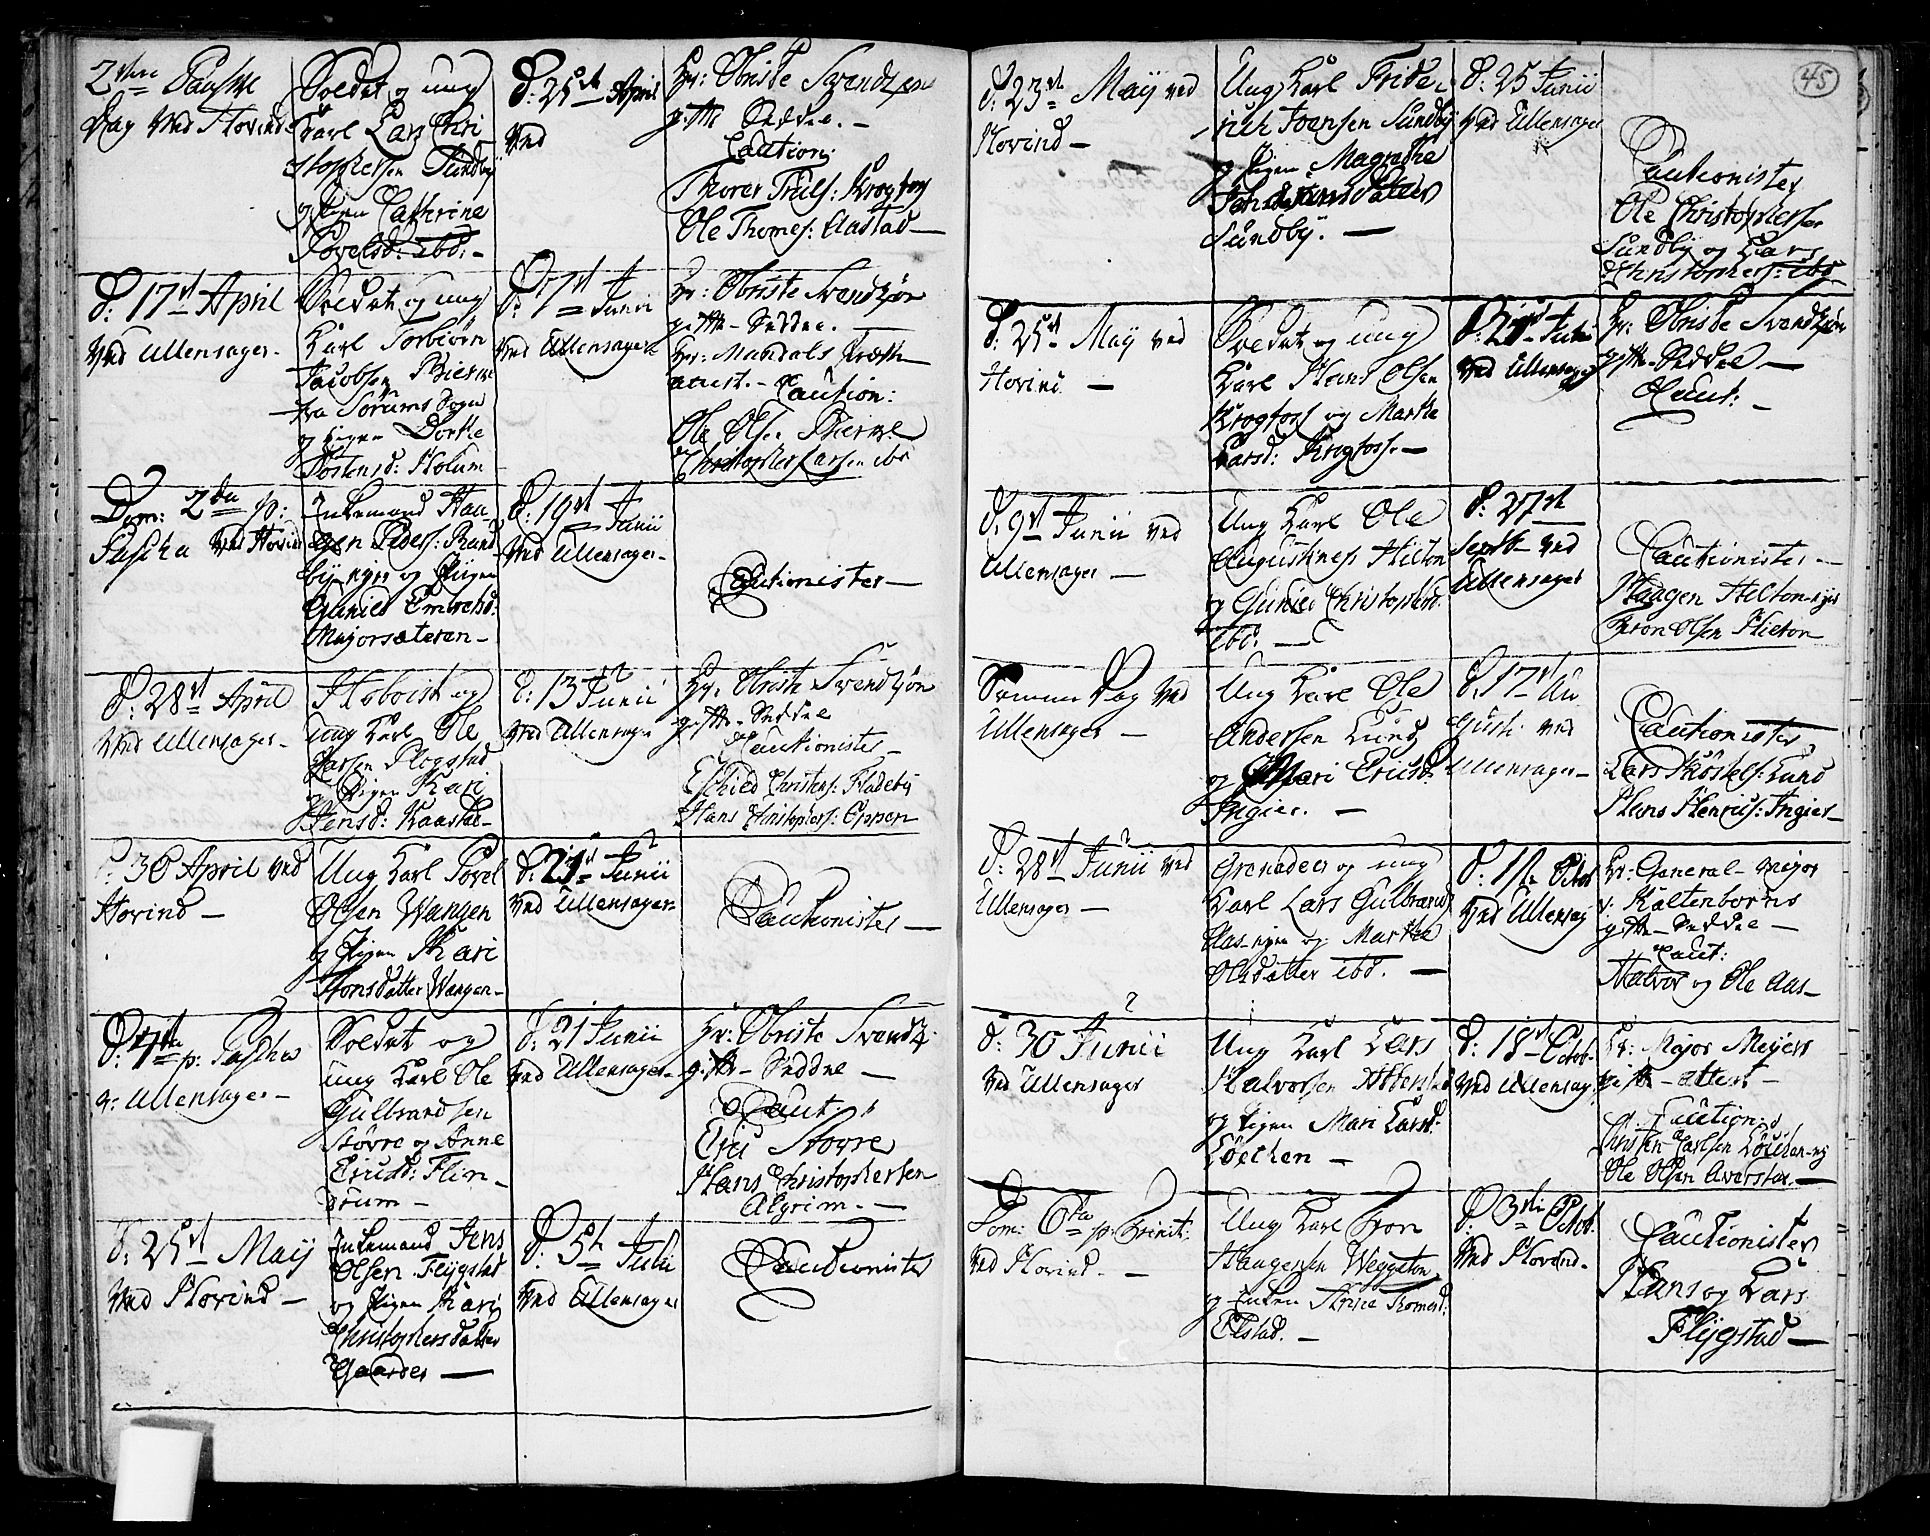 2den Paaske
Dag ved Hovind
Soldat og ung
Karl Lars Chri
stophersen Sundby
og Pigen Cathrine
Povelsd: ibd: -
d: 25de April
ved
Hr: Obriste Svendsen
gifte Seddel. -
Caution:
Thorer Truls: Krogfos
Ole Thomes: Aastad -
d: 17de April
ved Ullensager -
Soldat og ung
Karl Torbiørn
Jacobsen Bierke
fra Sørums Sogn
og Pigen Dorthe
Tostensd: Holum
d: 17de Junii
ved Ullensager
Hr: Obriste Svendsøn
gifte - Seddel. -
Hr: Mandals
attest. - Caution:
Ole Olsen Bierke
Christopher Larsen ibd
Dom: 2da p:
Pascha ved Hovind
Enkemand Haa
gen Peders: Rand
by og Pigen
Gunild Embretsd:
Majorsæteren -
d: 19de Junii
ved Ullensager -
Cautionister -
d: 28de April
ved Ullensager -
Hoboist og
ung Karl Ole
Larsen Plogstad
og Pigen Kari
Jensd: Kaastad -
d: 13 Junii
ved Ullensager
Hr. Obriste Svendsøn
gifte - Seddel
Cautionister -
Christens: Fladeby
Hans Christophers: Eppen
d: 30 April ved
Hovind -
Ung Karl Povel
Olsen Wangen
og Pigen Kari
Hansdatter Wangen -
d: 21de Junii
ved Ullensager
Cautionister -
d: 4da p: Pascha
v: Ullensager -
Soldat og
ung Karl Ole
Gulbrandsen
Støvre og Anne
Ericsd: Flen
drum -
d: 21 Junii
ved Ullensager -
Hr: Obriste Svends:
gifte - Seddel -
Caut:
Eric Støvre
Hans Christophersen
Algrim. -
d: 25de Maij
ved Hovind -
Enkemand Jens
Olsen Flygstad
og Pigen Kari
Christophersdatter
Gaarder -
d: 5te Julii
ved Ullensager
Cautionister
45
d: 23de Maij ved
Hovind -
Ung Karl Fride-
rich Joensen Sundby
og Pigen Magrethe
datter
Sundby. -
d: 25 Junii
ved Ullensager
Cautionister
Ole Christophersen
Sundby og Lars
Christophers: ibd
d: 25de Maij ved
Hovind -
Soldat og ung
Karl Hans Olsen
Krogfoss og Marthe
Larsd: Krogfoss -
d: 21de Julii
ved Ullensager
Hr: Obriste Svendsøn
gifte - Seddel -
Caut: -
d: 9de Junii ved
Ullensager -
Ung Karl Ole
Augustines Hilton
og Gunild Christophersd:
ibd: -
d: 27de
Septb - ved
Ullensager
Cautionister -
Haagen Hilton
Tron Olsen Hilton
Samme Dag ved
Ullensager -
Ung Karl Ole
Andersen Lund
og Mari Ericsd:
Ingier. -
d. 17de Au
gusti ved
Ullensager -
Cautionister
Lars Lund
Hans Henrics: Ingier -
d: 28de Junii ved
Ullensager -
Grenadeer og ung
Karl Lars Gulbrands
Aas og Marthe
Olsdatter ibd. -
d: 11te Octob
ved Ullensag
Hr: General - Major
v: Kaltenborns
gifte - Seddel -
Caut:
Halvor og Ole Aas -
d: 30 Junii
ved Ullensager
Ung Karl Lars
Halvorsen
og Pigen Mari Larsd:
Løechen -
d: 18de Octob
ved Ullensag:
Hr: Major Meyers
gifte - attest -
Caution:
Christen Carlsen Løchen
Ole Olsen Averstad -
Dom: 6ta p: Trinit:
ved Hovind. -
Ung Karl Tron
Haagensen Weggston
og Enken Anne Thomesd:
Elstad. -
d: 3die Octob:
ved Hovind -
Cautionister
Hans og Lars
Flygstad -